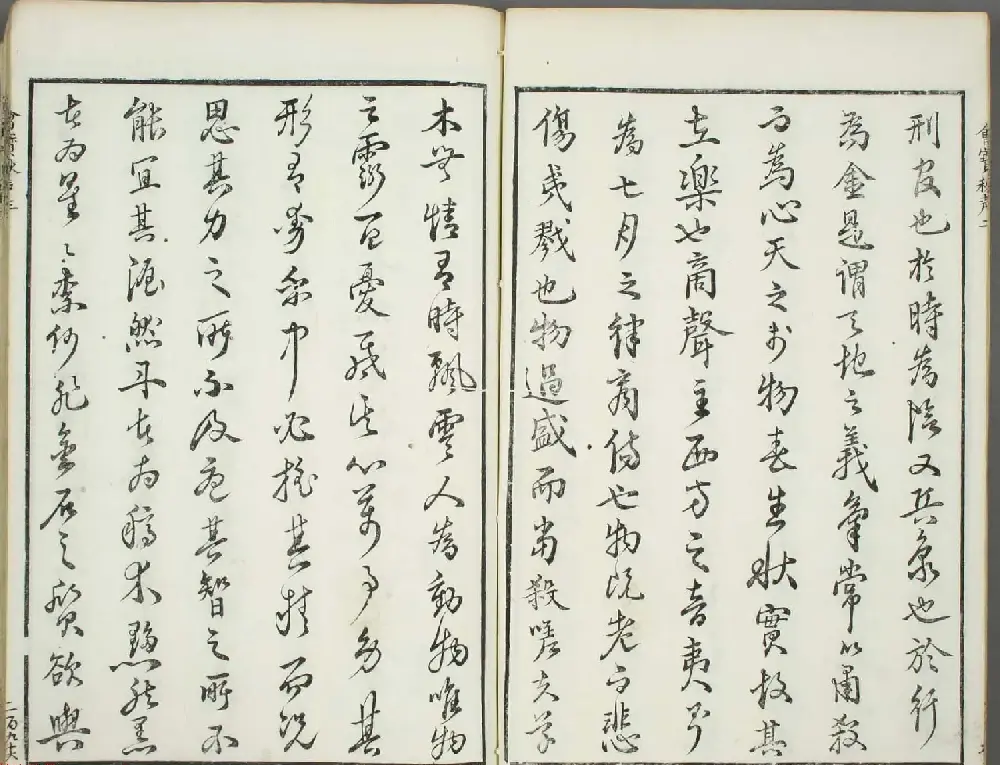 刑官也於時為陰又兵象也於行
為金是謂天地之義氣常以肅殺
而為心天之於物春生秋實故其
在樂也商聲主西方之音夷則
為七月之律商傷也物既老而悲
傷夷戮也物過盛而當殺嗟夫草
木無情有時飄零人為動物唯物
之靈百憂感其心萬事勞其
形有動乎中必搖其精而況
思其力之所不及憂其智之所不
能宜其渥然丹者為槁木黟然黑
者為星〻奈何非金石之質欲與